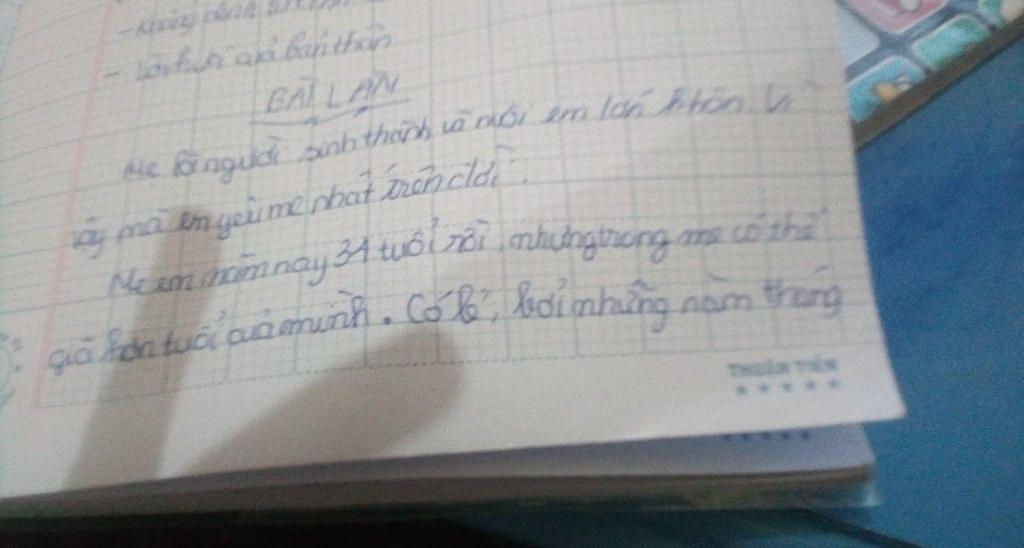 - không
- Lời hứa của bản thân
BÀI LÀM
Mẹ là người sinh thành và nuôi em lớn khôn. Vì
vậy mà em yêu mẹ nhất trên đời.
Mẹ em năm nay 34 tuổi rồi, nhưng trong mẹ có thể
già hơn tuổi của mình. Có lẽ, bởi những năm tháng
THUẬN TIẾN